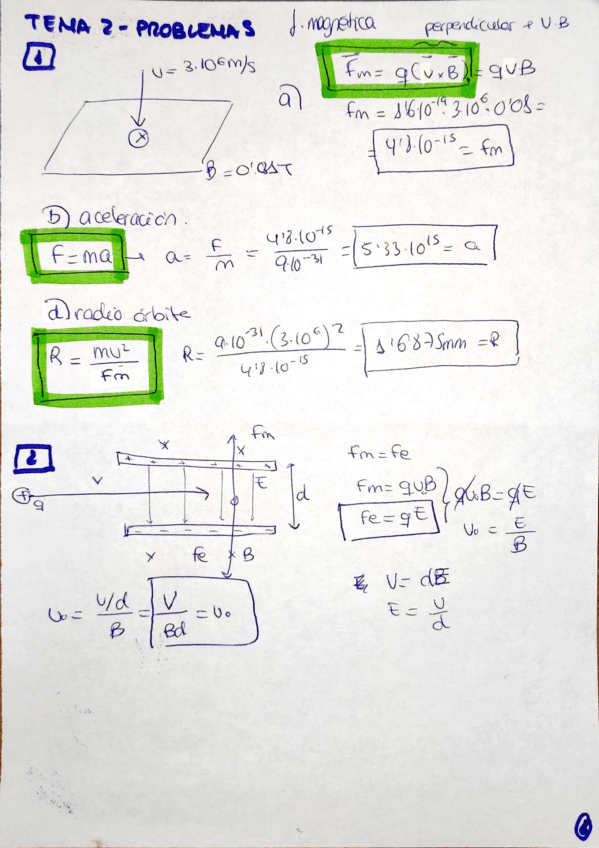 TEMA 2 - PROBLEMAS f. magnética perpendicular e v.B
1
v = 3·10⁶ m/s
B = 0'01T
a) Fm = q(v×B) = qvB
fm = 1'6·10⁻¹⁹·3·10⁶·0'01 =
= 4'8·10⁻¹⁵ = fm
b) aceleración.
F = ma → a = F/m = 4'8·10⁻¹⁵/9·10⁻³¹ = 5'33·10¹⁵ = a
d) radio órbite
R = mv²/Fm R = 9·10⁻³¹·(3·10⁶)²/4'8·10⁻¹⁵ = 1'6875mm = R
2
x x Fm
+ + + + +
v E d
+ q
- - - - -
x fe x B
fm = fe
Fm = qv₀B
Fe = qE
qv₀B = qE
v₀ = E/B
V = dE
E = V/d
v₀ = V/d/B = V/Bd = v₀